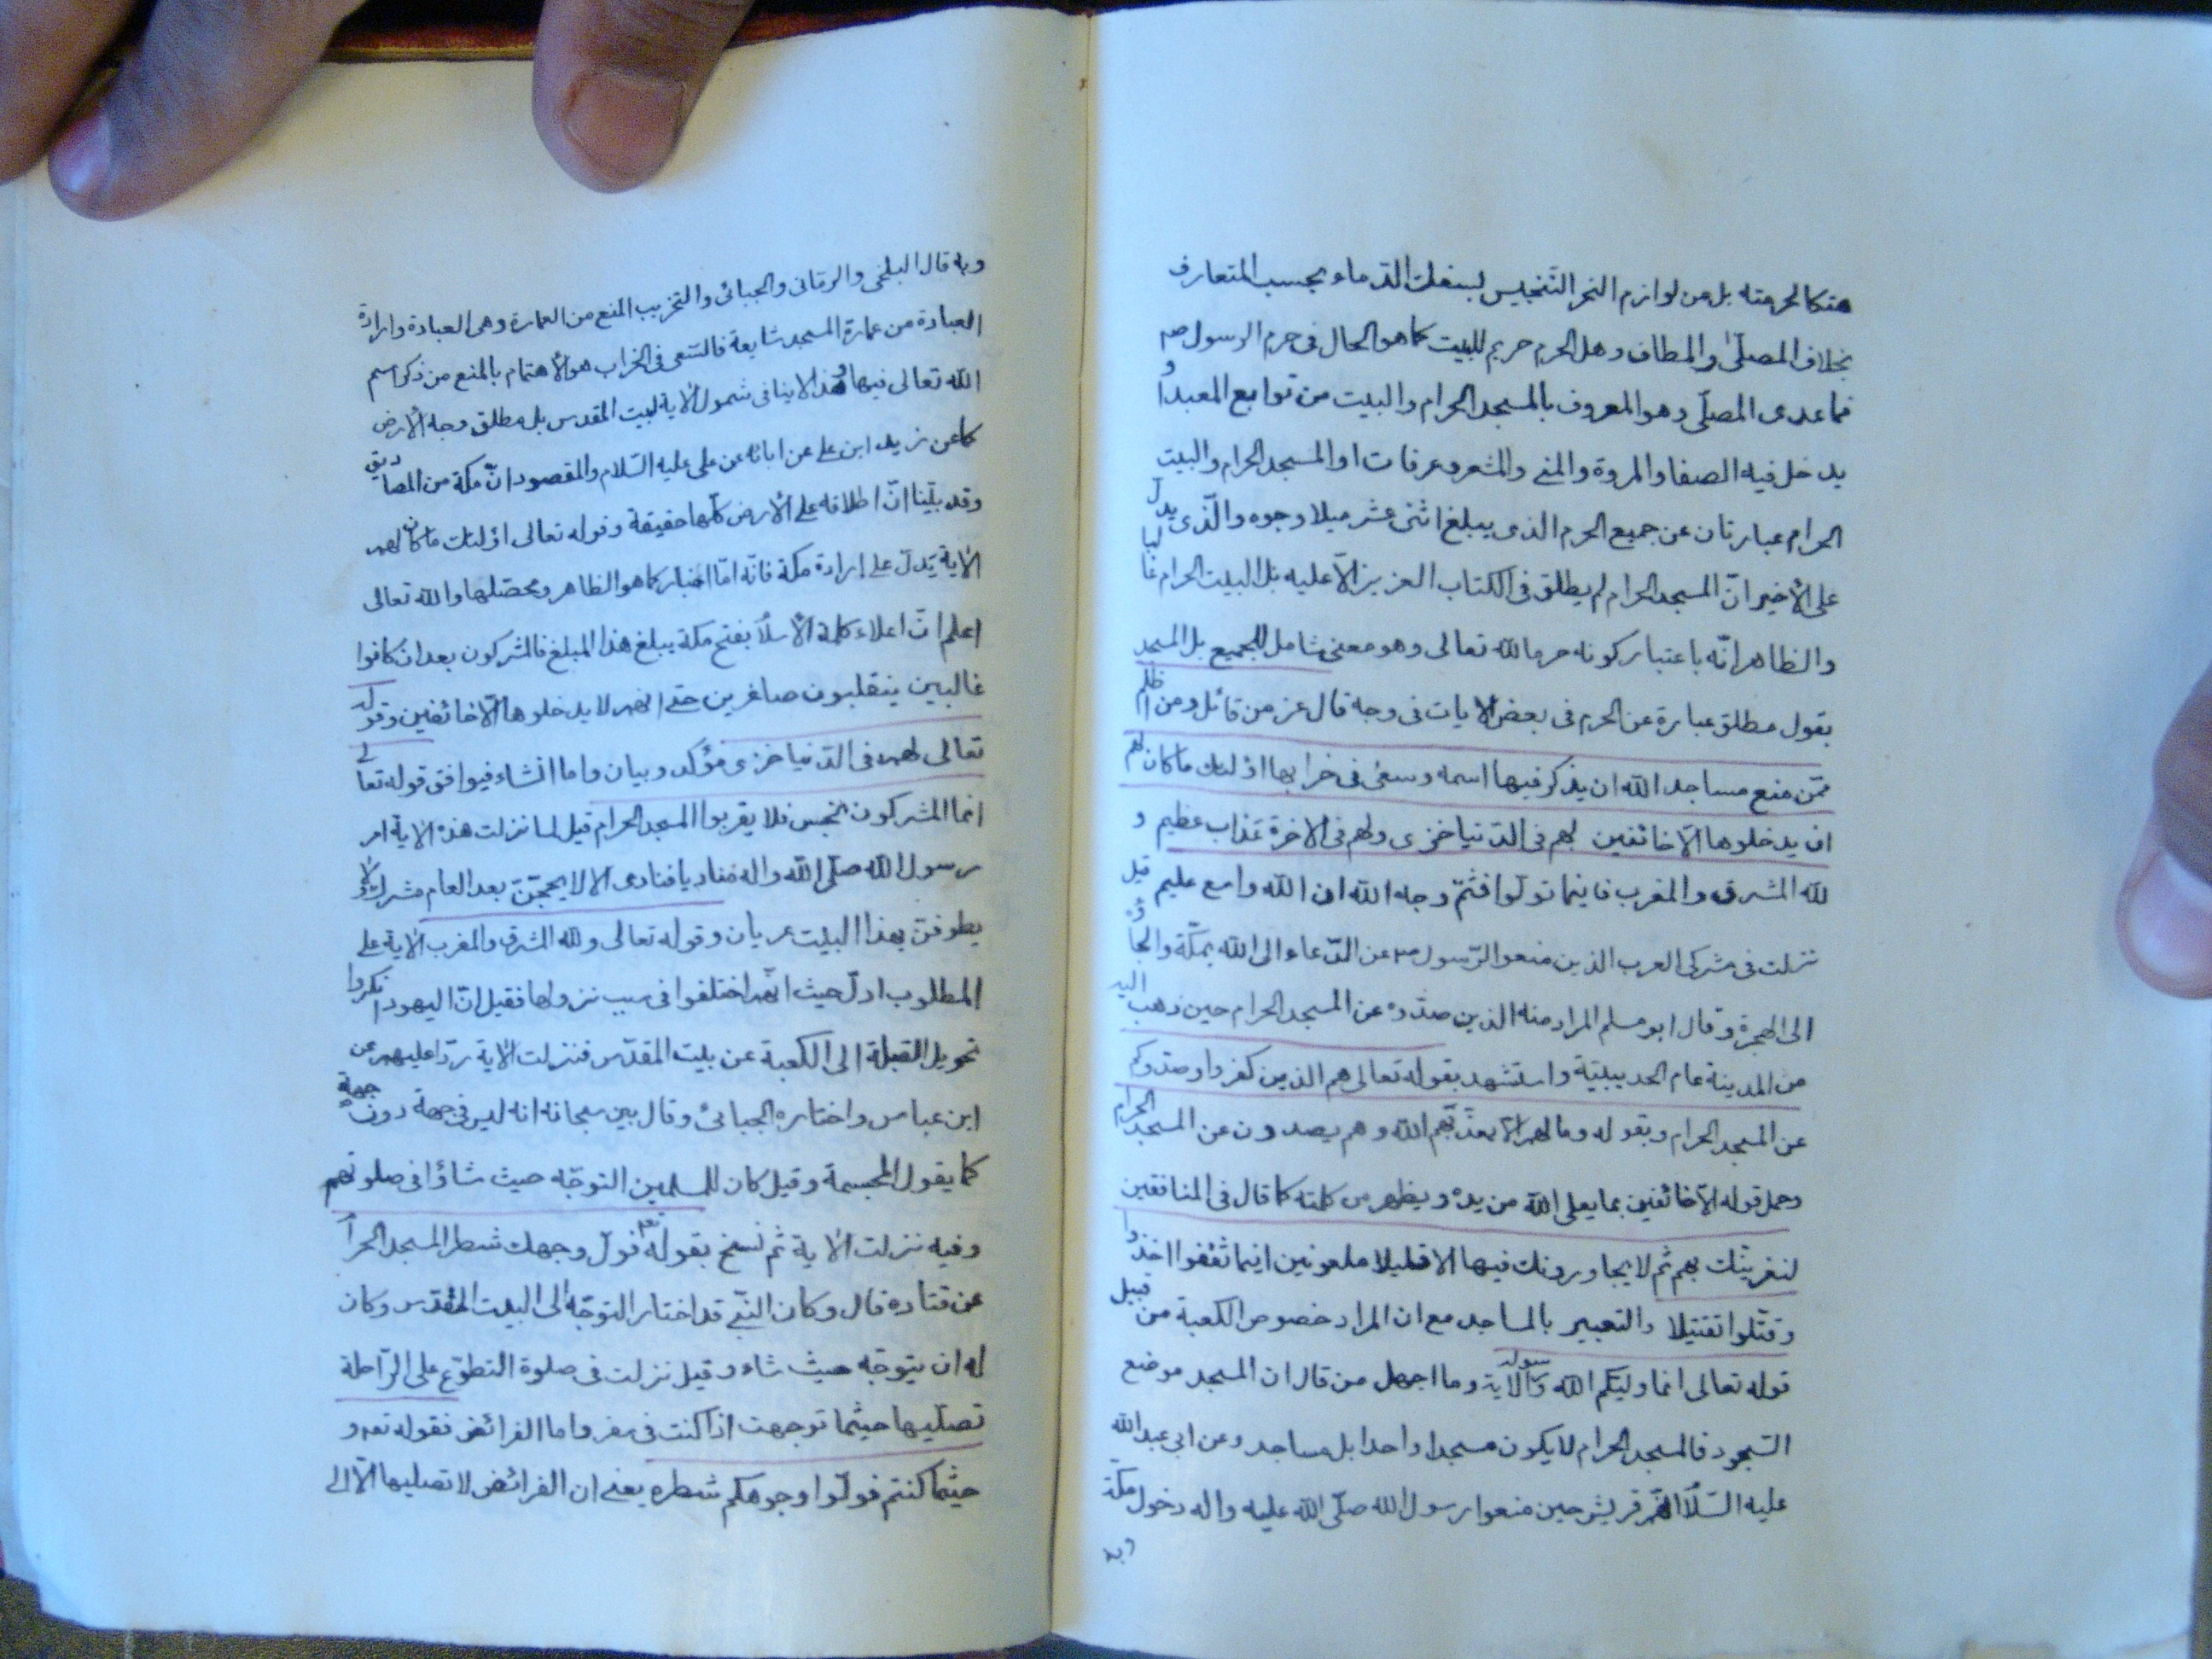 هتكا لحرمته بل من لوازم النحر التنجيس لسفك الدماء بحسب المتعارف
بخلاف المصلّى والمطاف وهل الحرم حريم للبيت كما هو الحال في حرم الرسول صم
فما عدى المصلّى وهو المعروف بالمسجد الحرام والبيت من توابع المعبد او
يدخل فيه الصفا والمروة والمنى والمشعر وعرفات او المسجد الحرام والبيت
الحرام عبارتان عن جميع الحرم الذى يبلغ اثنى عشر ميلا وجوه والّذى يدلّ
على الأخير انّ المسجد الحرام لم يطلق في الكتاب العزيز الّا عليه بل البيت الحرام غالبا
والظاهر انّه باعتبار كونه حرما لله تعالى وهو معنى شامل للجميع بل المسجد
بقول مطلق عبارة عن الحرم في بعض الايات في وجه قال عز من قائل ومن اظلم
ممّن منع مساجد الله ان يذكر فيها اسمه وسعى في خرابها اولئك ما كان لهم
ان يدخلوها الّا خائفين لهم في الدّنيا خزى ولهم في الاخرة عَذاب عظيم و
لله المشرق والمغرب فاينما تولّوا فثمّ وجه الله ان الله واسع عليم قيل
نزلت في مشركى العرب الذين منعوا الرّسول ص عن الدّعاء الى الله بمكّة والجاؤه
الى الهجرة وقال ابو مسلم المراد منه الذين صدّوه عن المسجد الحرام حين ذهب اليه
من المدينة عام الحديبيّة واستشهد بقوله تعالى هم الذين كفروا وصدّوكم
عن المسجد الحرام وبقوله وما لهم الّا يعذّبهم الله وهم يصدون عن المسجد الحرام
وحمل قوله الّا خائفين بما يعلى الله من يده ويظهر من كلمته كما قال في المنافقين
لنغرينّك بهم ثم لا يجاورونك فيها الا قليلا ملعونين اينما ثقفوا اخذوا
وقتّلوا تقتيلا والتعبير بالمساجد مع ان المراد خصوص الكعبة من قبيل
قوله تعالى انما وليّكم الله ورسوله الاية وما اجهل من قال ان المسجد موضع
السّجود فالمسجد الحرام لا يكون مسجدا واحدا بل مساجد وعن ابى عبد الله
عليه السّلام انّهم قريش حين منعوا رسول الله صلّى الله عليه واله دخول مكّة
وبه
وبه قال البلخى والرمّانى والجبائى والتخريب المنع من العمارة وهى العبادة وارادة
العبادة من عمارة المسجد شايعة فالسّعى في الخراب هو الأهتمام بالمنع من ذكر اسم
الله تعالى فيها وهذا لا ينافى شمول الاية لبيت المقدس بل مطلق وجه الأرض
كما عن زيد ابن على عن ابائه عن على عليه السّلام والمقصود انّ مكة من المصاديق
وقد بيّنا انّ اطلاقه على الأرض كلّها حقيقة وقوله تعالى اولئك ما كان لهم
الاية يَدلّ على إرادة مكة فانّه امّا اخبار كما هو الظاهر ومحصّلها والله تعالى
اعلم انّ اعلاء كلمة الأسلام بفتح مكة يبلغ هذا المبلغ فالمشركون بعد ان كانوا
غالبين ينقلبون صاغرين حتى انهم لا يدخلوها الّا خائفين وقوله
تعالى لهم في الدّنيا خزى مؤكد وبيان واما انشاء فيوافق قوله تعالى
انما المشركون نجس فلا يقربوا المسجد الحرام قيل لما نزلت هذه الاية امر
رسول الله صلّى الله واله مناديا فنادى الا لا يحجّنّ بعد العام مشرك ولا
يطوفنّ بهذا البيت عريان وقوله تعالى ولله المشرق والمغرب الاية على
المطلوب ادلّ حيث انّهم اختلفوا في سبب نزولها فقيل انّ اليهود انكروا
تحويل القبلة الى الكعبة عن بيت المقدّس فنزلت الاية ردّا عليهم عن
ابن عباس واختاره الجبائى وقال بين سبحانه انه ليس في جهة دون جهة
كما يقول المجسمة وقيل كان للمسلمين التوجّه حيث شاؤا في صلوتهم
وفيه نزلت الاية ثم نسخ بقوله تعم فولّ وجهك شطر المسجد الحرام
عن قتاده قال وكان النبّى قد اختار التوجّه الى البيت المقدّس وكان
له ان يتوجّه حيث شاء وقيل نزلت في صلوة التطوّع على الرّاحلة
تصلّيها حيثما توجهت اذا كنت في سفر واما الفرائض فقوله تعم و
حيثما كنتم فولّوا وجوهكم شطره يعنى ان الفرائض لا تصليها الّا الى